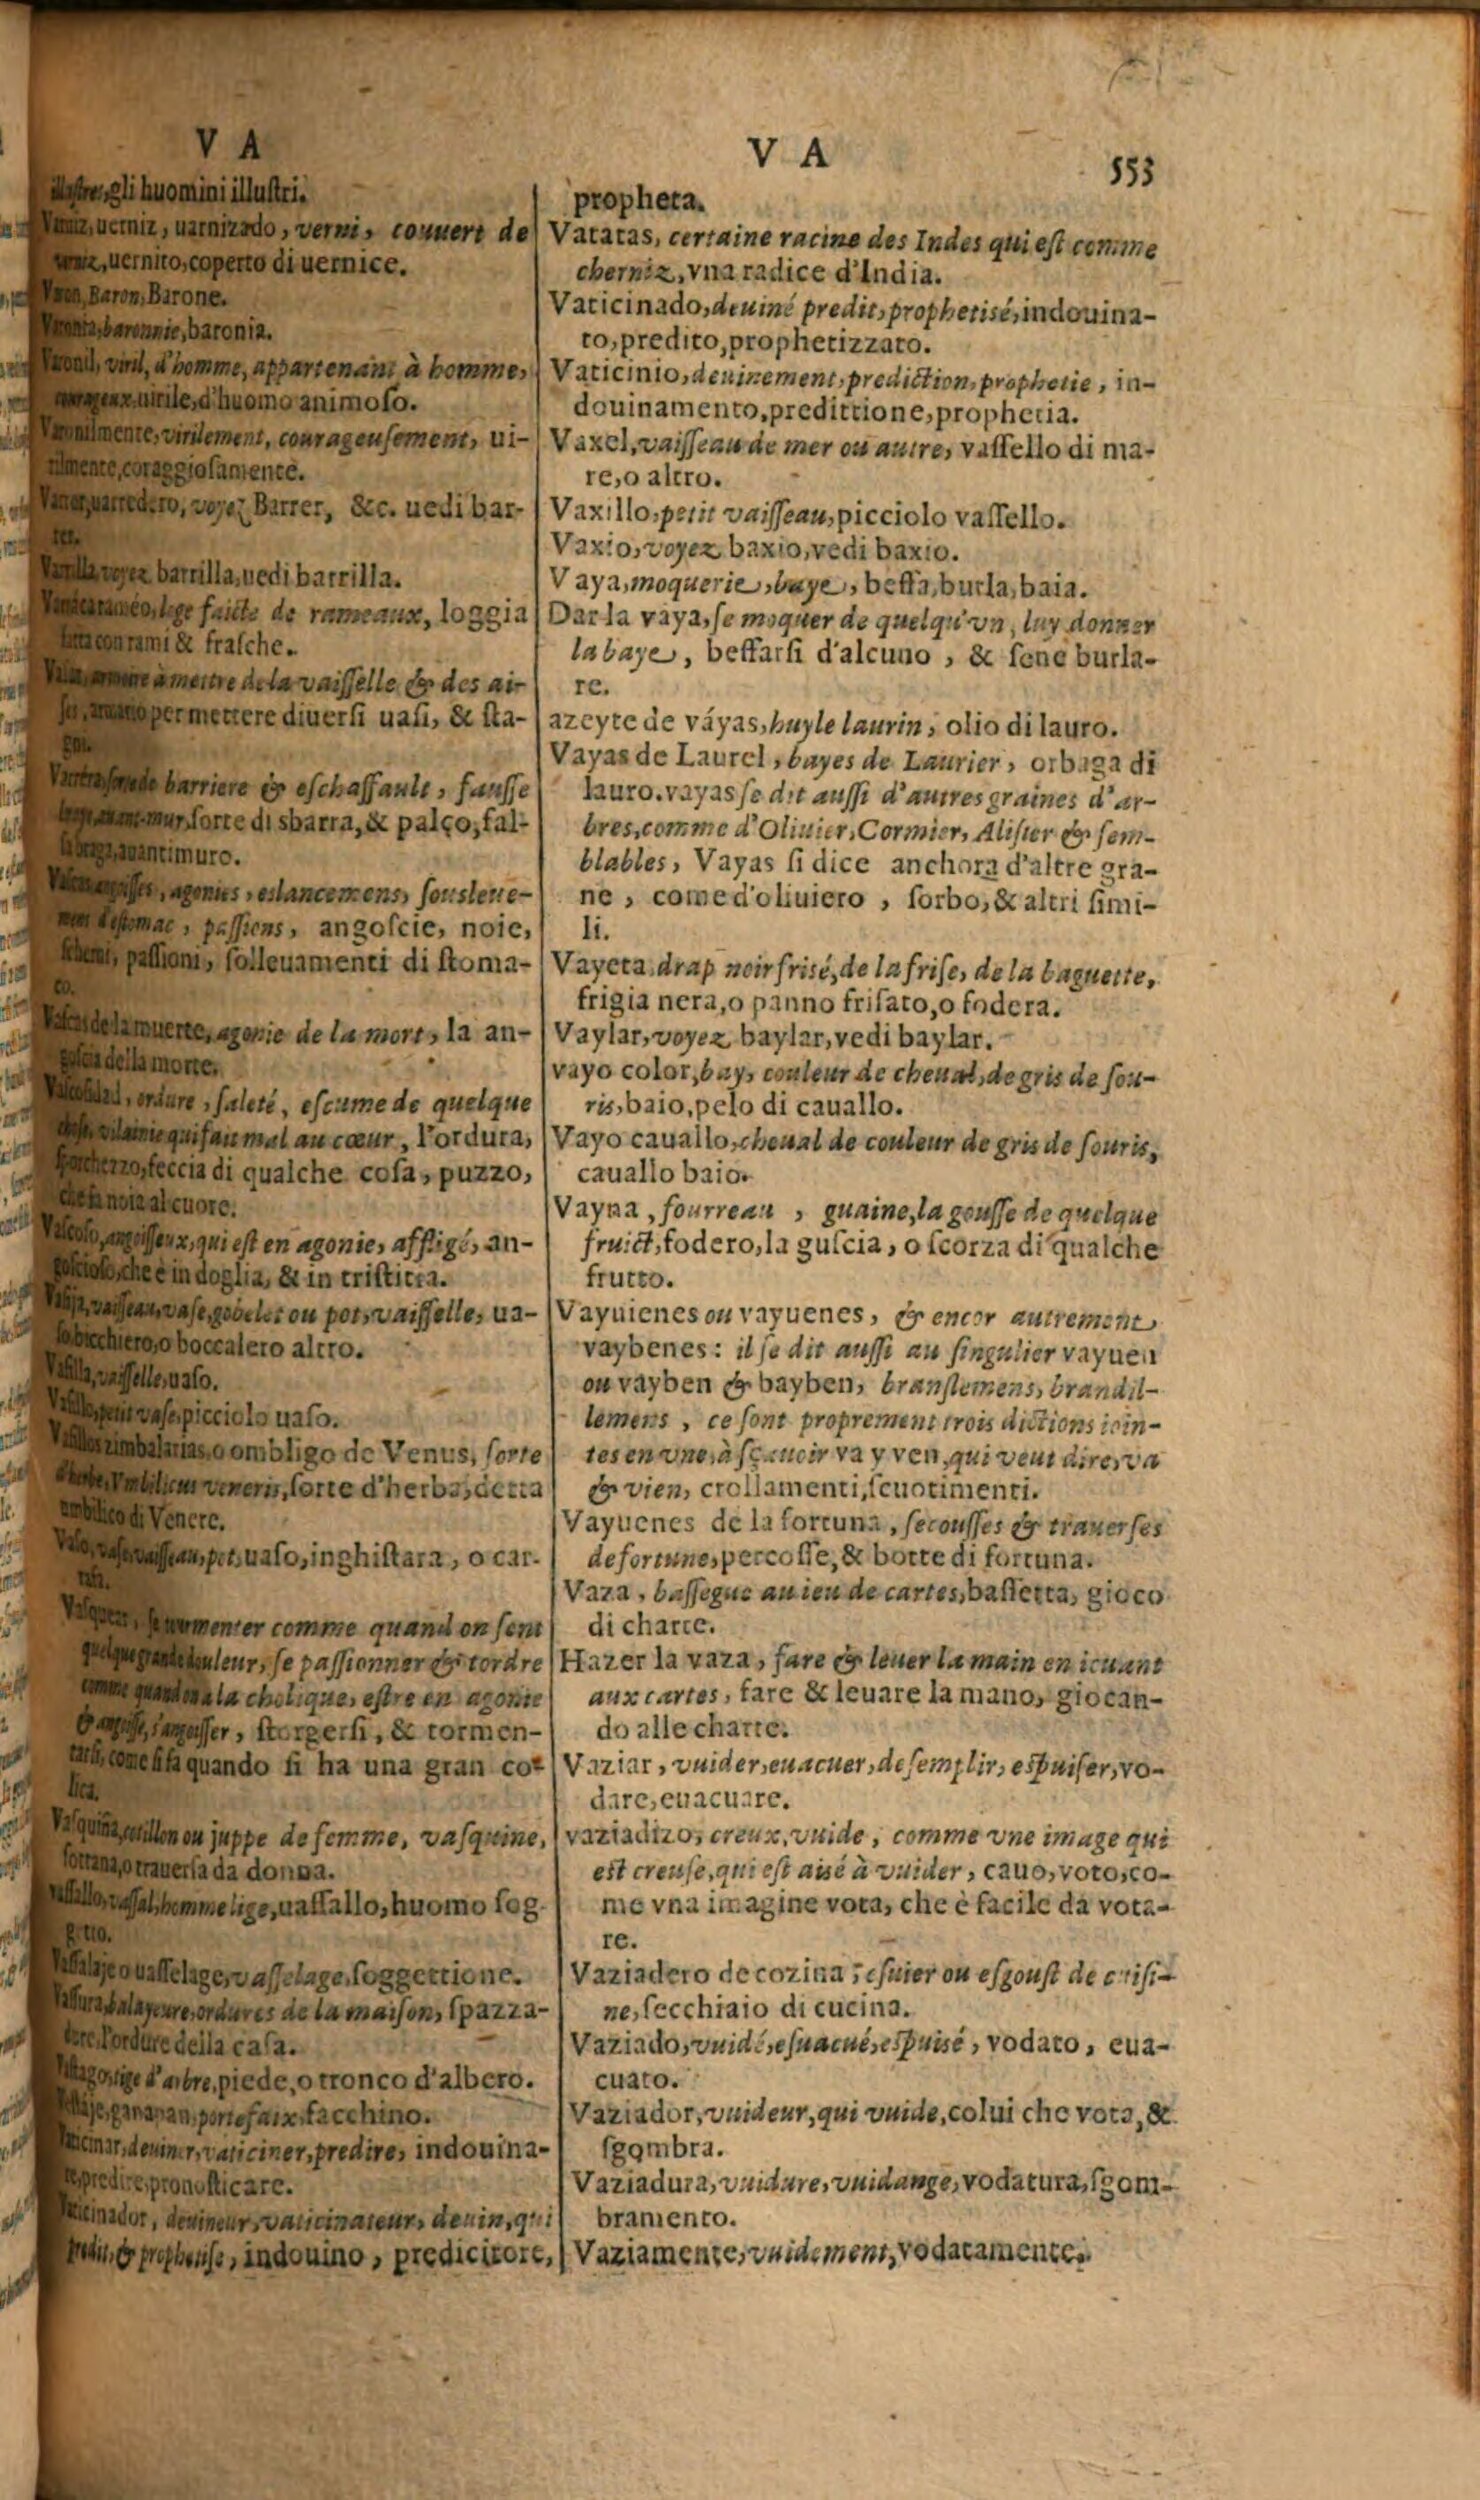 V A
V A
553
gli huomini illuſtri.
uerniz, uarnizado, verni, couuert de
uernito, coperto di uernice.
Baron, Barone.
baronnie, baronia.
viril, d'homme, appartenant à homme,
uirile, d'huomo animoſo.
Varonilmente, virilement, courageuſement, ui-
rilmente, coraggioſamente.
uarredero, voyez Barrer, &c. uedi bar-
rer.
Varrilla voyez barrilla, uedi barrilla.
loge faicte de rameaux, loggia
fatta con rami & fraſche.
armoire à mettre de la vaiſſelle & des ai-
per mettere diuerſi uaſi, & ſta-
gni.
barriere & eſchaffault, fauſſe
mur, ſorte di sbarra, & palco, fal-
auantimuro.
agonies, eslancemens, ſousleue-
d'eſtomac, paſſions, angoſcie, noie,
paſſioni, ſolleuamenti di ſtoma-
co.
de la muerte, agonie de la mort, la an-
goſcia della morte.
ordure, ſaleté, eſcume de quelque
vilainie qui fait mal au cœur, l'ordura,
feccia di qualche coſa, puzzo,
che fa noia al cuore.
Vaſcoſo, angoiſſeux, qui eſt en agonie, affligé, an-
goſcioſo, che è in doglia, & in triſtitia.
Vaſija, vaiſſeau, vaſe, gobelet ou pot, vaiſſelle, ua-
ſo, bicchiero, o boccalero altro.
Vaſilla, vaiſſelle, uaſo.
Vaſillo, petit vaſe, picciolo uaſo.
Vaſillos zimbalarias, o ombligo de Venus, ſorte
d'herbe, Vmbilicus veneris, ſorte d'herba, detta
ombilico di Venere.
Vaſo, vaſe, vaiſſeau, pot, uaſo, inghiſtara, o car-
raſa.
ſe tourmenter comme quand on ſent
quelque grande douleur, ſe paſſionner & tordre
comme quand on a la cholique, eſtre en agonie
& angoiſſe, s'angoiſſer, ſtorgerſi, & tormen-
tarſi, come ſi fa quando ſi ha una gran co-
lica.
Vaſquiña, cotillon ou juppe de femme, vaſquine,
ſottana, o trauerſa da donna.
Vaſſallo, vaſſal, homme lige, uaſſallo, huomo ſog-
getto.
Vaſſalaje o uaſſelage, vaſſelage, ſoggettione.
Vaſſura, balayeure, ordures de la maiſon, ſpazza-
ture, l'ordure della caſa.
tige d'arbre, piede, o tronco d'albero.
ganapan, portefaix, facchino.
Vaticinar, deuiner, vaticiner, predire, indouina-
re, predire, pronoſticare.
Vaticinador, deuineur, vaticinateur, deuin, qui
predit, & propheriſe, indouino, predicitore,
propheta.
Vatatas, certaine racine des Indes qui eſt comme
cherniz, vna radice d'India.
Vaticinado, deuiné predit, prophetisé, indouina-
to, predito, prophetizzato.
Vaticinio, deuinement, prediction, prophetie, in-
douinamento, predittione, prophetia.
Vaxel, vaiſſeau de mer ou autre, vaſſello di ma-
re, o altro.
Vaxillo, petit vaiſſeau, picciolo vaſſello.
Vaxio, voyez baxio, vedi baxio.
Vaya, moquerie, baye, beffa, burla, baia.
Dar la vaya, ſe moquer de quelqu'vn, luy donner
la baye, beffarſi d'alcuno, & ſene burla-
re.
azeyte de váyas, huyle laurin, olio di lauro.
Vayas de Laurel, bayes de Laurier, orbaga di
lauro. vayas ſe dit auſſi d'autres graines d'ar-
bres, comme d'Oliuier, Cormier, Aliſier & ſem-
blables, Vayas ſi dice anchora d'altre gra-
ne, come d'oliuiero, ſorbo, & altri ſimi-
li.
Vayeta, drap noir friſé, de la friſe, de la baguette,
frigia nera, o panno friſato, o fodera.
Vaylar, voyez baylar, vedi baylar.
vayo color, bay, couleur de cheual, de gris de ſou-
ris, baio, pelo di cauallo.
Vayo cauallo, cheual de couleur de gris de ſouris,
cauallo baio.
Vayna, fourreau, guaine, la gouſſe de quelque
fruict, fodero, la guſcia, o ſcorza di qualche
frutto.
Vayuienes ou vayuenes, & encor autrement
vaybenes: il ſe dit auſſi au ſingulier vayuen
ou vayben & bayben, branſlemens, brandil-
lemens, ce ſont proprement trois dictions ioin-
tes en vne, à ſçauoir va y ven, qui veut dire, va
& vien, crollamenti, ſcuotimenti.
Vayuenes de la fortuna, ſecouſſes & trauerſes
de fortune, percoſſe, & botte di fortuna.
Vaza, baſſegue au ieu de cartes, baſſetta, gioco
di charte.
Hazer la vaza, fare & leuer la main en iouant
aux cartes, fare & leuare la mano, giocan-
do alle charte.
Vaziar, vuider, euacuer, deſemplir, espuiſer, vo-
dare, euacuare.
vaziadizo, creux, vuide, comme vne image qui
est creuſe, qui eſt aisé à vuider, cauo, voto, co-
me vna imagine vota, che è facile da vota-
re.
Vaziadero de cozina, eſuier ou eſgouſt de cuiſi-
ne, ſecchiaio di cucina.
Vaziado, vuidé, eſuacué, espuisé, vodato, eua-
cuato.
Vaziador, vuideur, qui vuide, colui che vota, &
ſgombra.
Vaziadura, vuidure, vuidange, vodatura, ſgom-
bramento.
Vaziamente, vuidement, vodatamente.